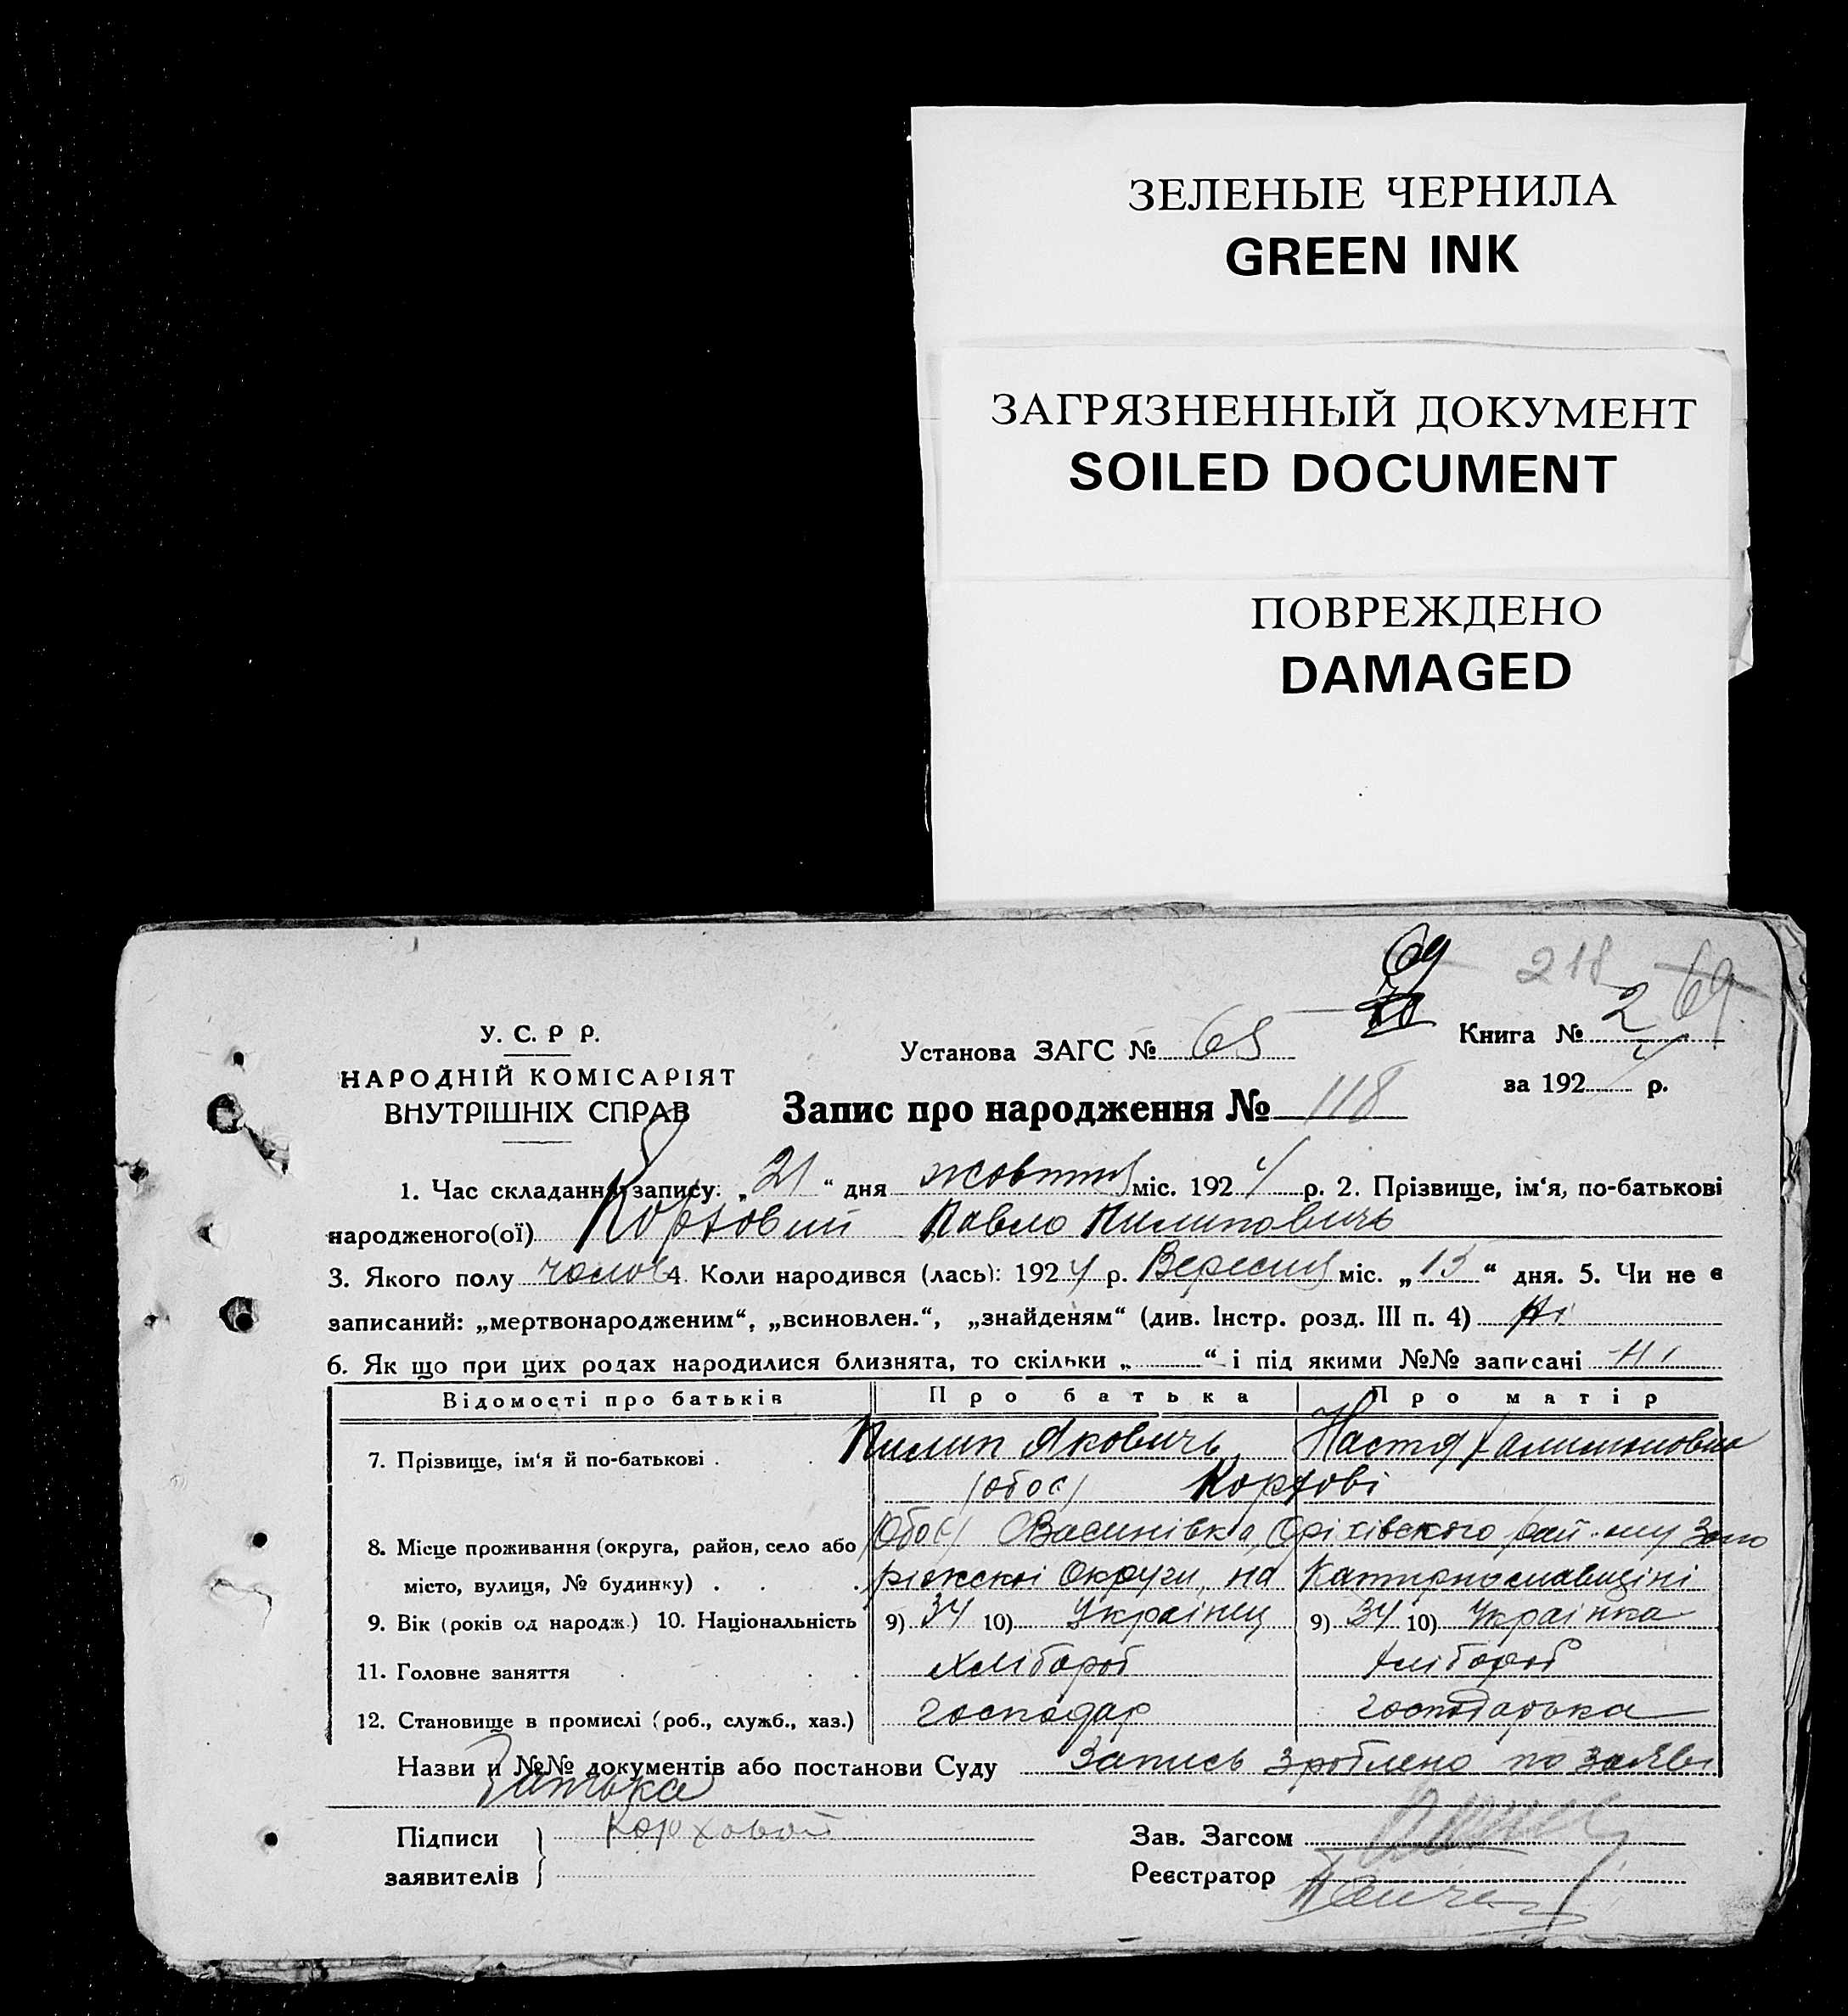 ЗЕЛЕНЫЕ ЧЕРНИЛА
GREEN INK
ЗАГРЯЗНЕННЫЙ ДОКУМЕНТ
SOILED DOCUMENT
ПОВРЕЖДЕНО
DAMAGED
69 218 69
У. С. Р Р.
НАРОДНІЙ КОМІСАРІЯТ
ВНУТРІШНІХ СПРАВ
Установа ЗАГС № 65
Книга № 2
за 1924 р.
Запис про народження № 118
1. Час складання запису: „21“ дня жовтня міс. 1924 р. 2. Прізвище, ім‘я, по-батькові
народженого(ої) Корховий Павло Пилиповичь
3. Якого полу чолов 4. Коли народився (лась): 1924 р. Вересня міс. „13“ дня. 5. Чи не є
записаний: „мертвонародженим“, „всиновлен.“, „знайденям“ (див. Інстр. розд. III п. 4) Ні
6. Як що при цих родах народилися близнята, то скільки „ “ і під якими №№ записані Ні
Відомості про батьків Про батька Про матір
7. Прізвище, ім‘я й по-батькові . Пилип Яковичь Настя
(обоє) Корхові
8. Місце проживання (округа, район, село або (Обоє) Васинівка, Оріхівского рай-ну Запо
місто, вулиця, № будинку) . . . ріжскоі Округи, на Катиринославщіні
9. Вік (років од народж.) 10. Національність 9) 34 10) Украінец 9) 34 10) Украінка
11. Головне заняття . . . Хлібороб Хлібороб
12. Становище в промислі (роб., служб., хаз.) господар господарька
Назви и №№ документів або постанови Суду Запись зроблено по заяві
батька
Підписи Корховой
заявителів
Зав. Загсом
Реєстратор